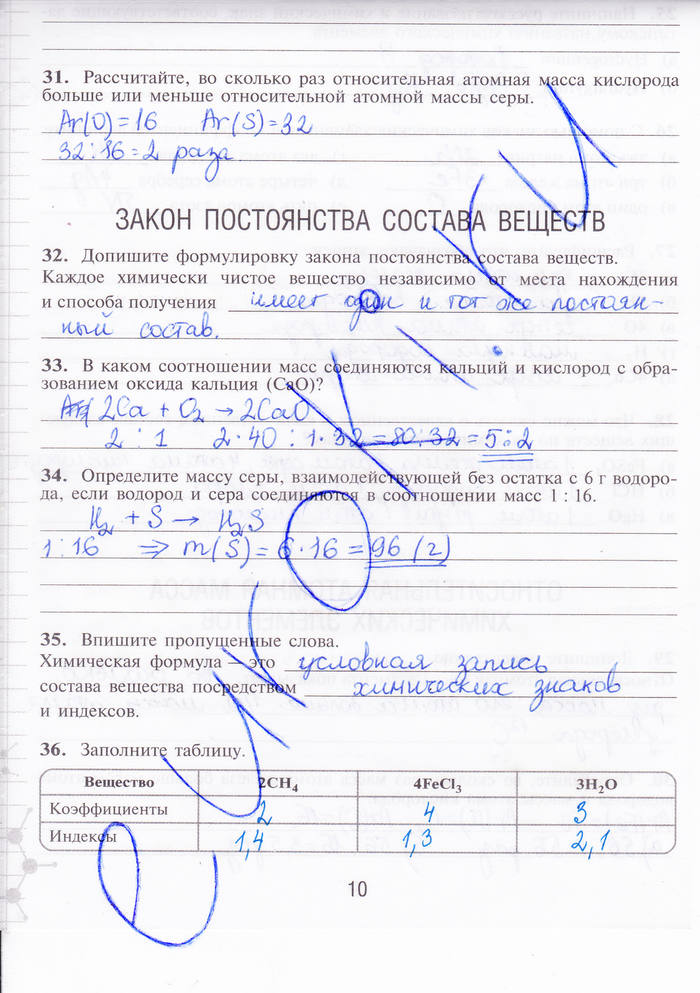 31. Рассчитайте, во сколько раз относительная атомная масса кислорода
больше или меньше относительной атомной массы серы.
Ar(O) = 16 Ar(S) = 32
32 : 16 = 2 раза.
ЗАКОН ПОСТОЯНСТВА СОСТАВА ВЕЩЕСТВ
32. Допишите формулировку закона постоянства состава веществ.
Каждое химически чистое вещество независимо от места нахождения
и способа получения имеет один и тот же постоян-
ный состав.
33. В каком соотношении масс соединяются кальций и кислород с обра-
зованием оксида кальция (CaO)?
2Ca + O₂ → 2CaO
2 : 1 2·40 : 1·32 = 80:32 = 5:2
34. Определите массу серы, взаимодействующей без остатка с 6 г водоро-
да, если водород и сера соединяются в соотношении масс 1 : 16.
H₂ + S → H₂S
1:16 ⇒ m(S) = 6·16 = 96 (г)
35. Впишите пропущенные слова.
Химическая формула — это условная запись
состава вещества посредством химических знаков
и индексов.
36. Заполните таблицу.
Вещество 2CH₄ 4FeCl₃ 3H₂O
Коэффициенты 2 4 3
Индексы 1,4 1,3 2,1
10